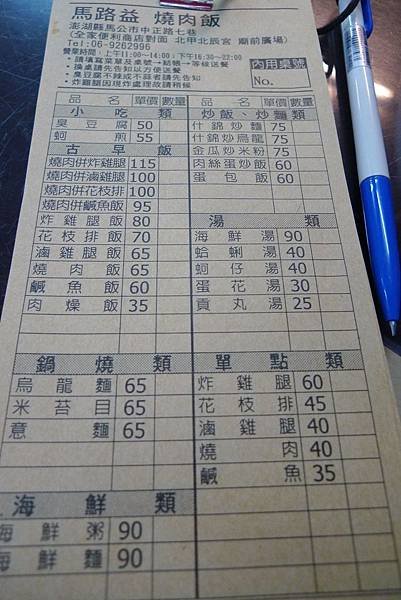 馬路益 燒肉飯
澎湖縣馬公市中正路七巷
(全家便利商店對面 北甲北辰宮 廟前廣場)
Tel:06-9262996
營業時間:上午11:00~14:00;下午16:30~22:00
• 請填寫菜單及桌號→結帳→等候送餐
• 換桌請先告知以方便送餐
• 臭豆腐不辣或不蒜者請先告知
• 炸雞腿因現炸處理故請稍候
內用桌號
No.
品名 單價 數量
小吃類
臭豆腐 50
蚵煎 55
古早飯
燒肉併炸雞腿 115
燒肉併滷雞腿 100
燒肉併花枝排 100
燒肉併鹹魚飯 95
炸雞腿飯 80
花枝排飯 70
滷雞腿飯 65
燒肉飯 65
鹹魚飯 60
肉燥飯 35
鍋燒類
烏龍麵 65
米苔目 65
意麵 65
海鮮類
海鮮粥 90
海鮮麵 90
品名 單價 數量
炒飯、炒麵類
什錦炒麵 75
什錦炒烏龍 75
金瓜炒米粉 75
肉絲蛋炒飯 60
蛋包飯 60
湯類
海鮮湯 90
蛤蜊湯 40
蚵仔湯 40
蛋花湯 30
貢丸湯 25
單點類
炸雞腿 60
花枝排 45
滷雞腿 40
燒肉 40
鹹魚 35